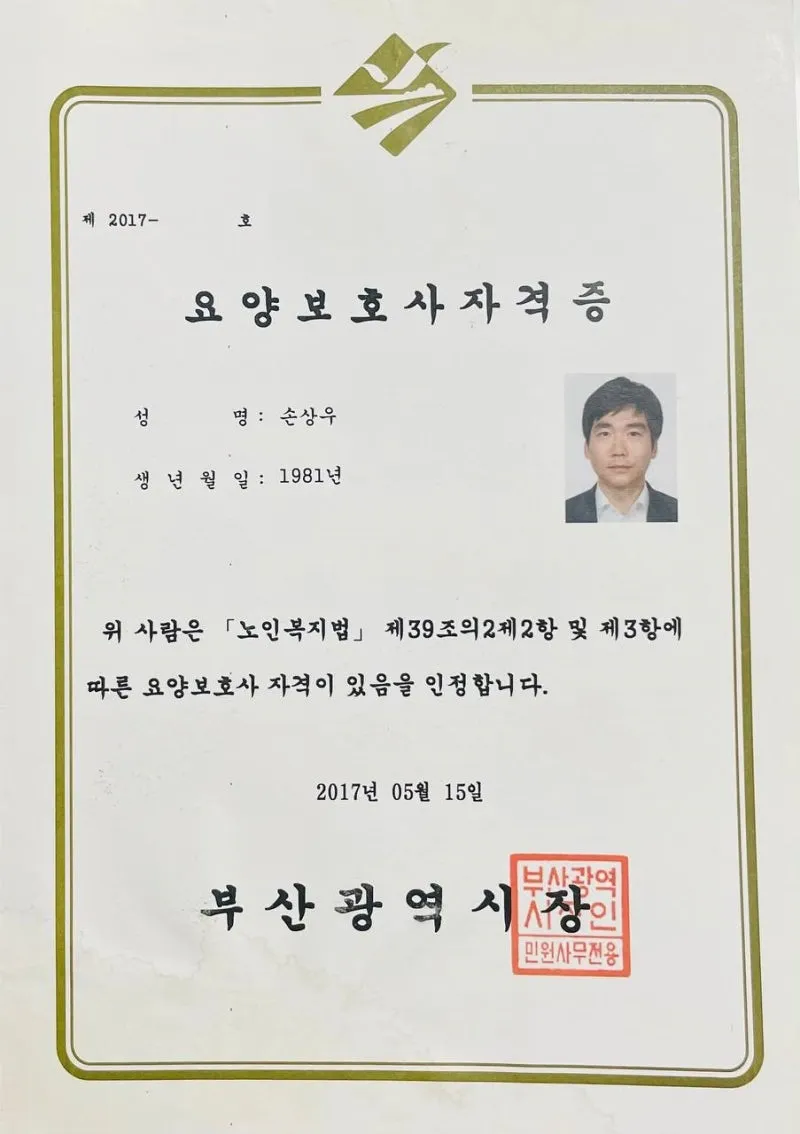 제 2017- 호
요양보호사자격증
성 명 : 손상우
생 년 월 일 : 1981년
위 사람은 「노인복지법」 제39조의2제2항 및 제3항에
따른 요양보호사 자격이 있음을 인정합니다.
2017년 05월 15일
부산광역시장
부산광역
시장인
민원사무전용